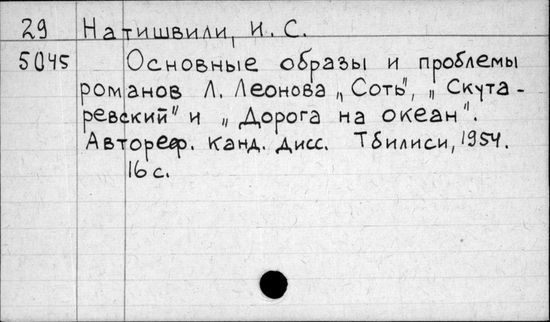 29 Натишвили, И. С.
5045 Основные образы и проблемы
романов Л. Леонова „Соть", „Скута-
ревский" и „Дорога на океан".
Автореф. канд. дисс. Тбилиси, 1954.
16 с.